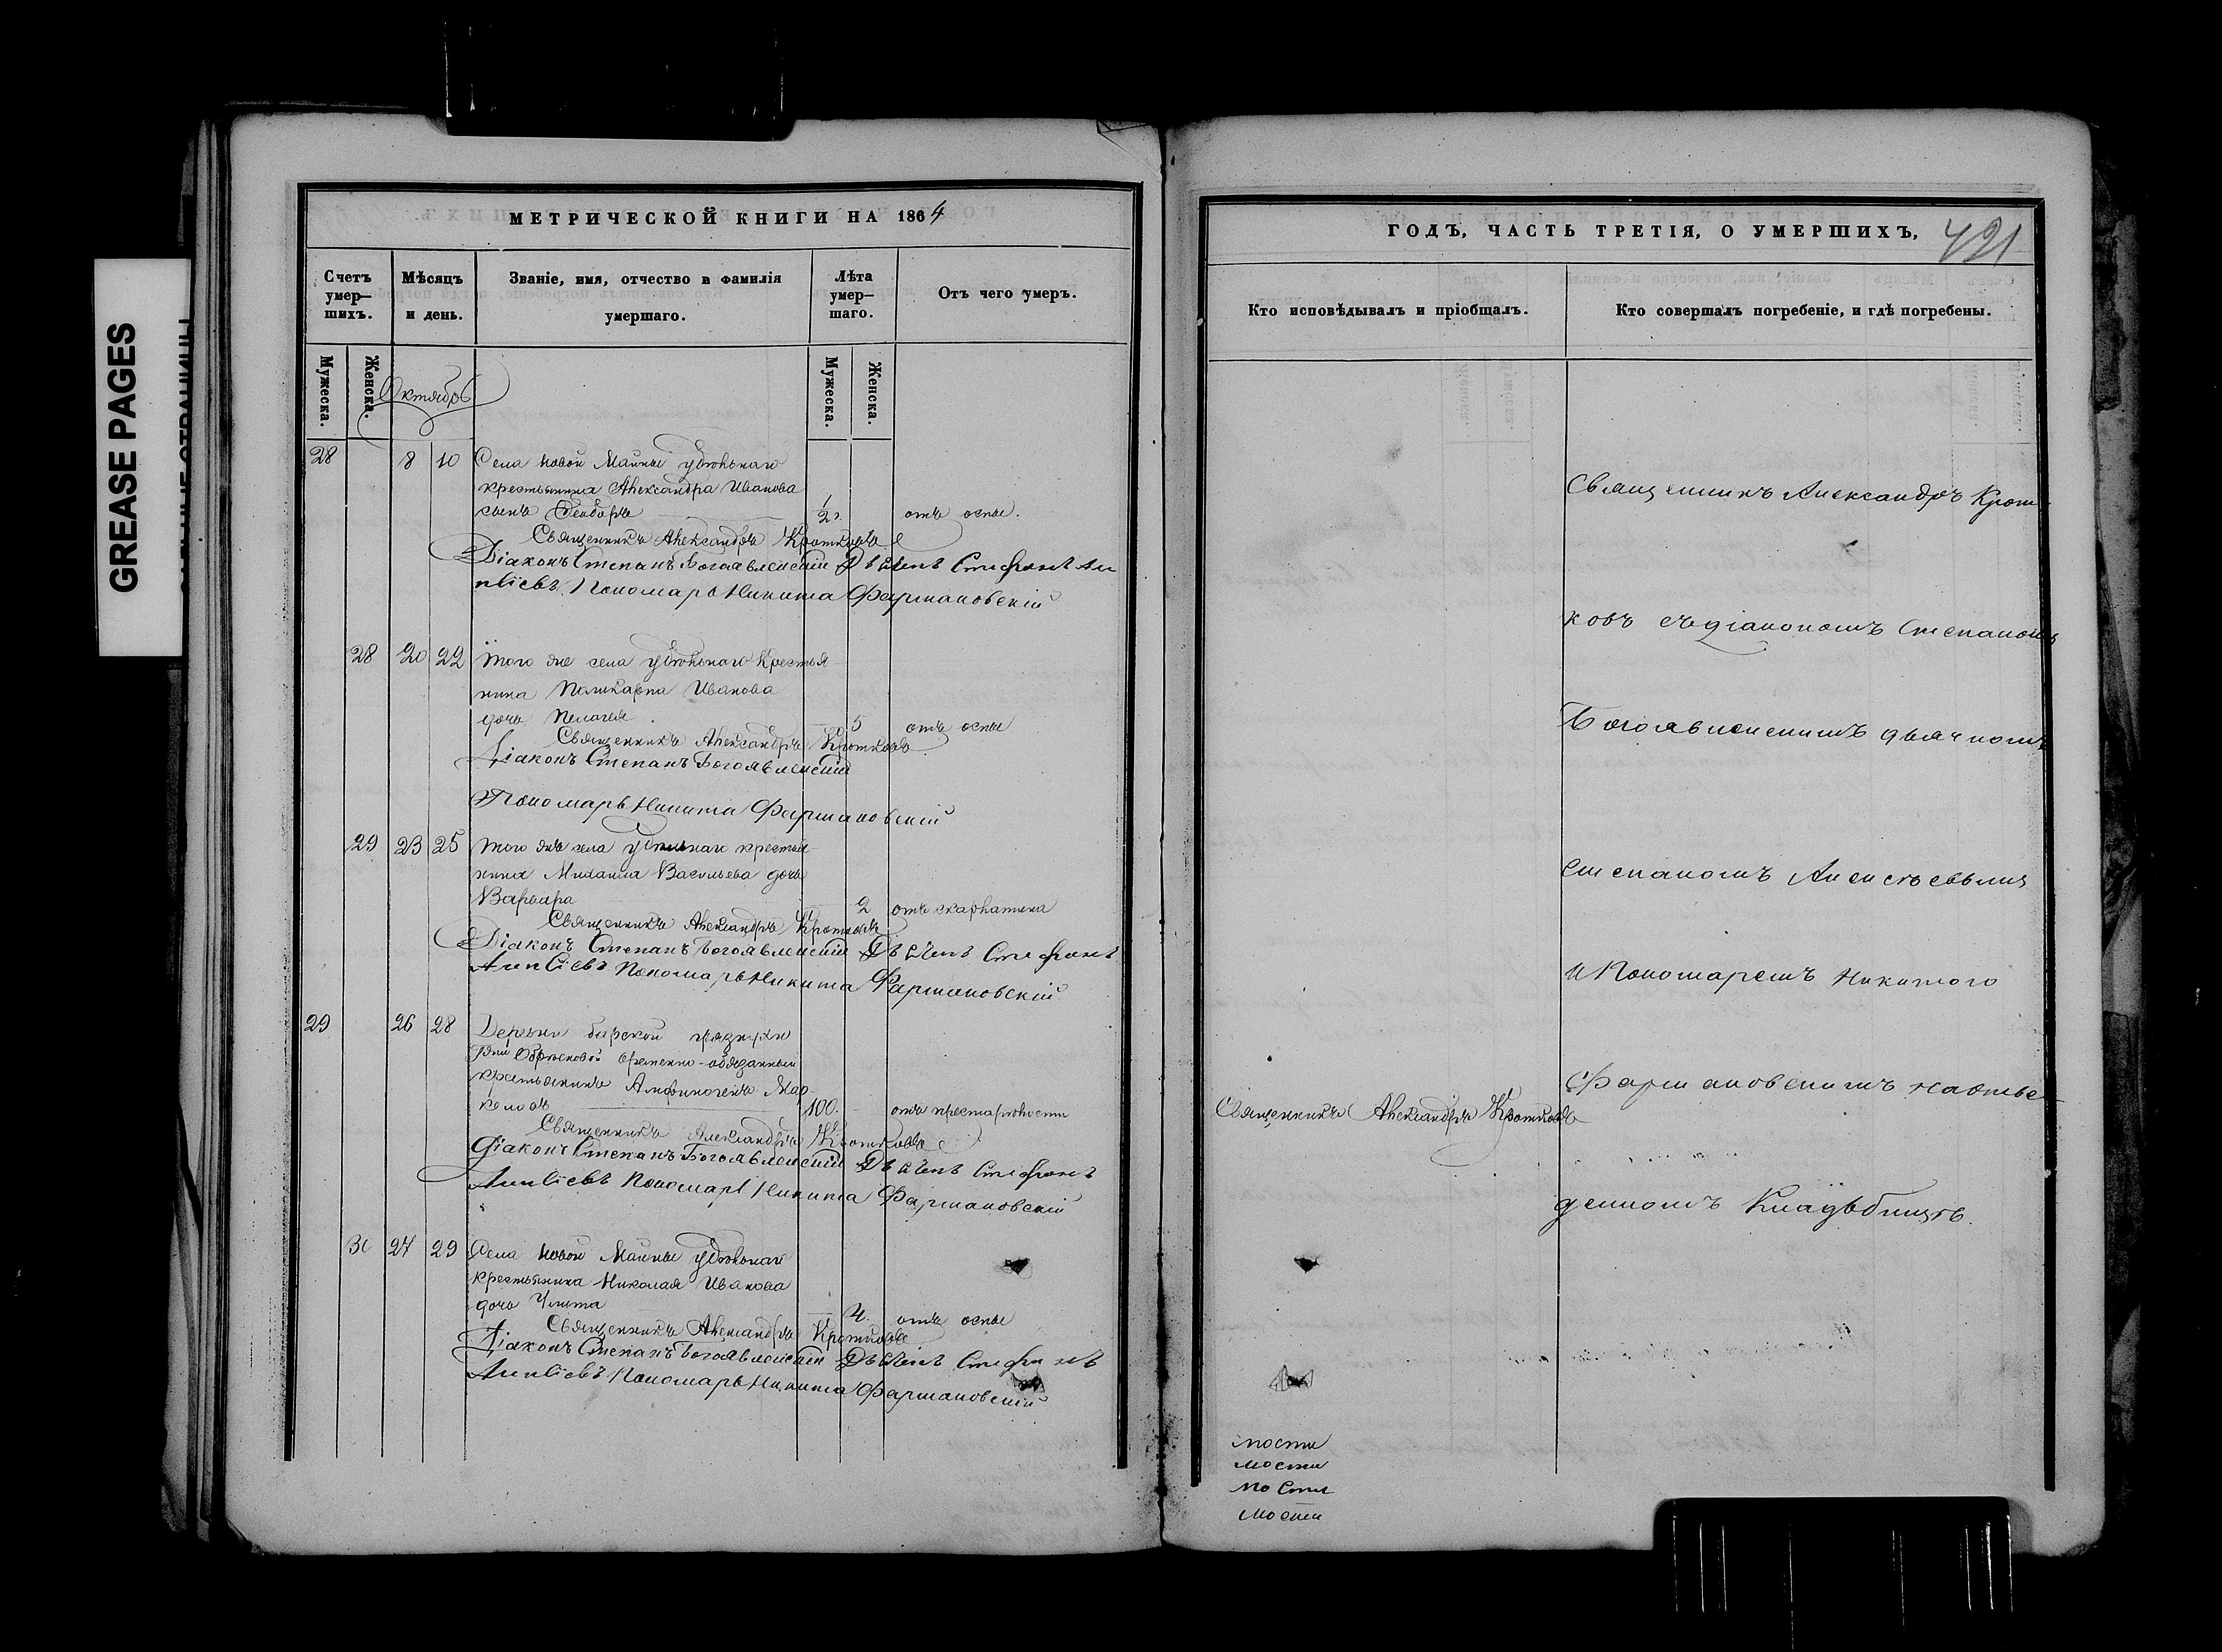 GREASE PAGES
МЕТРИЧЕСКОЙ КНИГИ НА 1864
Счетъ умер—шихъ.
Мѣсяцъ и день.
Званіе, имя, отчество и фамилія умершаго.
Лѣта умер—шаго.
Отъ чего умеръ.
Мужеска.
Женска.
Октябрь
Мужеска.
Женска.
28 8 10 Села Новой Майны удѣльнаго
крестьянина Александра Иванова
сынъ Ѳеодоръ 1/2 г. отъ оспы.
Священникъ Александръ Кротковъ
Діаконъ Степанъ Богоявленскій Дьячекъ Стефанъ Али
пьевъ Пономарь Никита Фармаковскій
28 20 22 Того же села удѣльнаго крестья
нина Поликарпа Иванова
дочь Пелагея 5 отъ оспы
Священникъ Александръ Кротковъ
Діаконъ Степанъ Богоявленскій
Пономарь Никита Фармаковскій
29 23 25 Того же села удѣльнаго крестья
нина Михаила Васильева дочь
Варвара 2 отъ скарлатина
Священникъ Александръ Кротковъ
Діаконъ Степанъ Богоявленскій Дьячекъ Стефанъ
Пономарь Никита Фармаковскій
29 26 28 Деревни барской
временно-обязанный
крестьянинъ Амфиногенъ Мар
ковъ 100. отъ престарѣлости
Священникъ Александръ Кротковъ
Діаконъ Степанъ Богоявленскій Дьячекъ Стефанъ
Пономарь Никита Фармаковскій
30 27 29 Села Новой Майны удѣльнаго
крестьянина Николая Иванова
дочь Улита 4 отъ оспы
Священникъ Александръ Кротковъ
Діаконъ Степанъ Богоявленскій Дьячекъ Стефанъ
Пономарь Никита Фармаковскій
ГОДЪ, ЧАСТЬ ТРЕТІЯ, О УМЕРШИХЪ,
421
Кто исповѣдывалъ и пріобщалъ.
Кто совершалъ погребеніе, и гдѣ погребены.
Священникъ Александръ Крот
ковъ съ діакономъ Степаномъ
Богоявленскимъ дьячкомъ
Степаномъ
и Пономаремъ Никитою
Фармаковскимъ на отве
Священникъ Александръ Кротковъ
денномъ Кладьбищѣ.
мости
мости
мости
мости